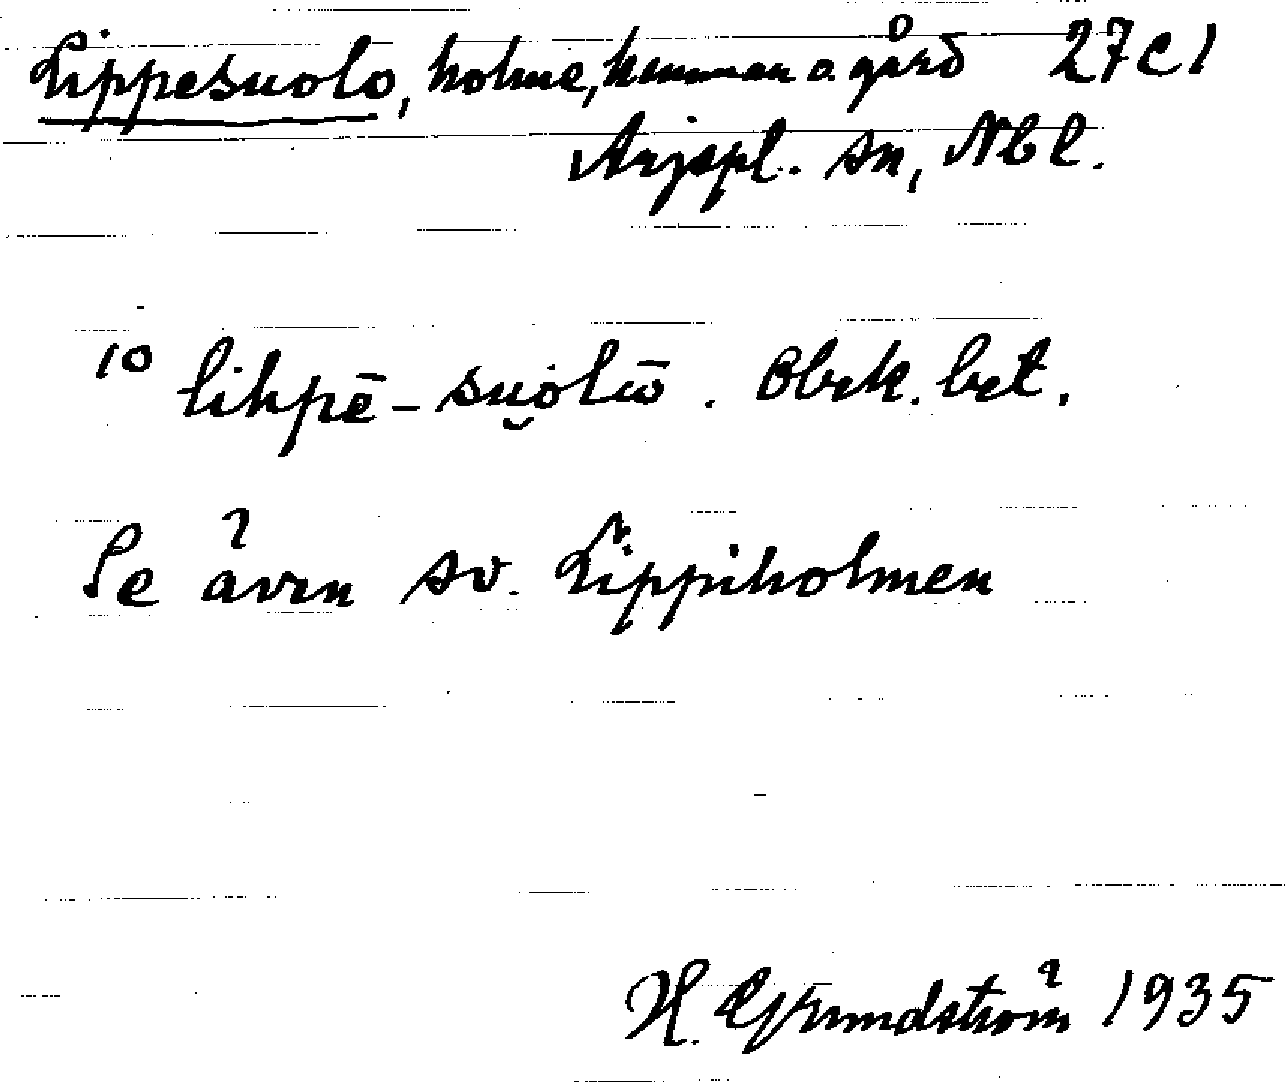 Lippesuolo, holme, hemman o. gård 27 C 1
Arjepl. sn, Nbl.
10 lihpē-su̯ólū. Obek. bet.
Se även sv. Lippiholmen
H. Grundström 1935